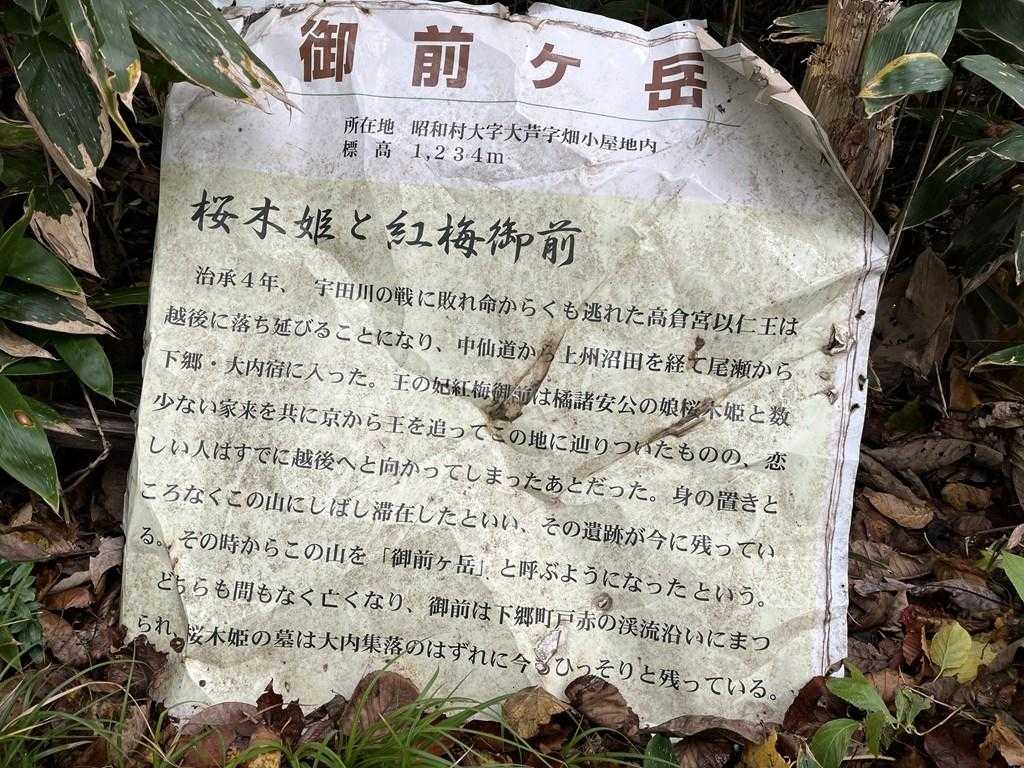 御前ヶ岳
所在地　昭和村大字大芦字畑小屋地内
標　高　1,234m
桜木姫と紅梅御前
治承4年、宇田川の戦に敗れ命からくも逃れた高倉宮以仁王は
越後に落ち延びることになり、中仙道から上州沼田を経て尾瀬から
下郷・大内宿に入った。王の妃紅梅御前は橘諸安公の娘桜木姫と数
少ない家来を共に京から王を追ってこの地に辿りついたものの、恋
しい人はすでに越後へと向かってしまったあとだった。身の置きと
ころなくこの山にしばし滞在したといい、その遺跡が今に残ってい
る。その時からこの山を「御前ヶ岳」と呼ぶようになったという。
どちらも間もなく亡くなり、御前は下郷町戸赤の渓流沿いにまつ
られ、桜木姫の墓は大内集落のはずれに今もひっそりと残っている。